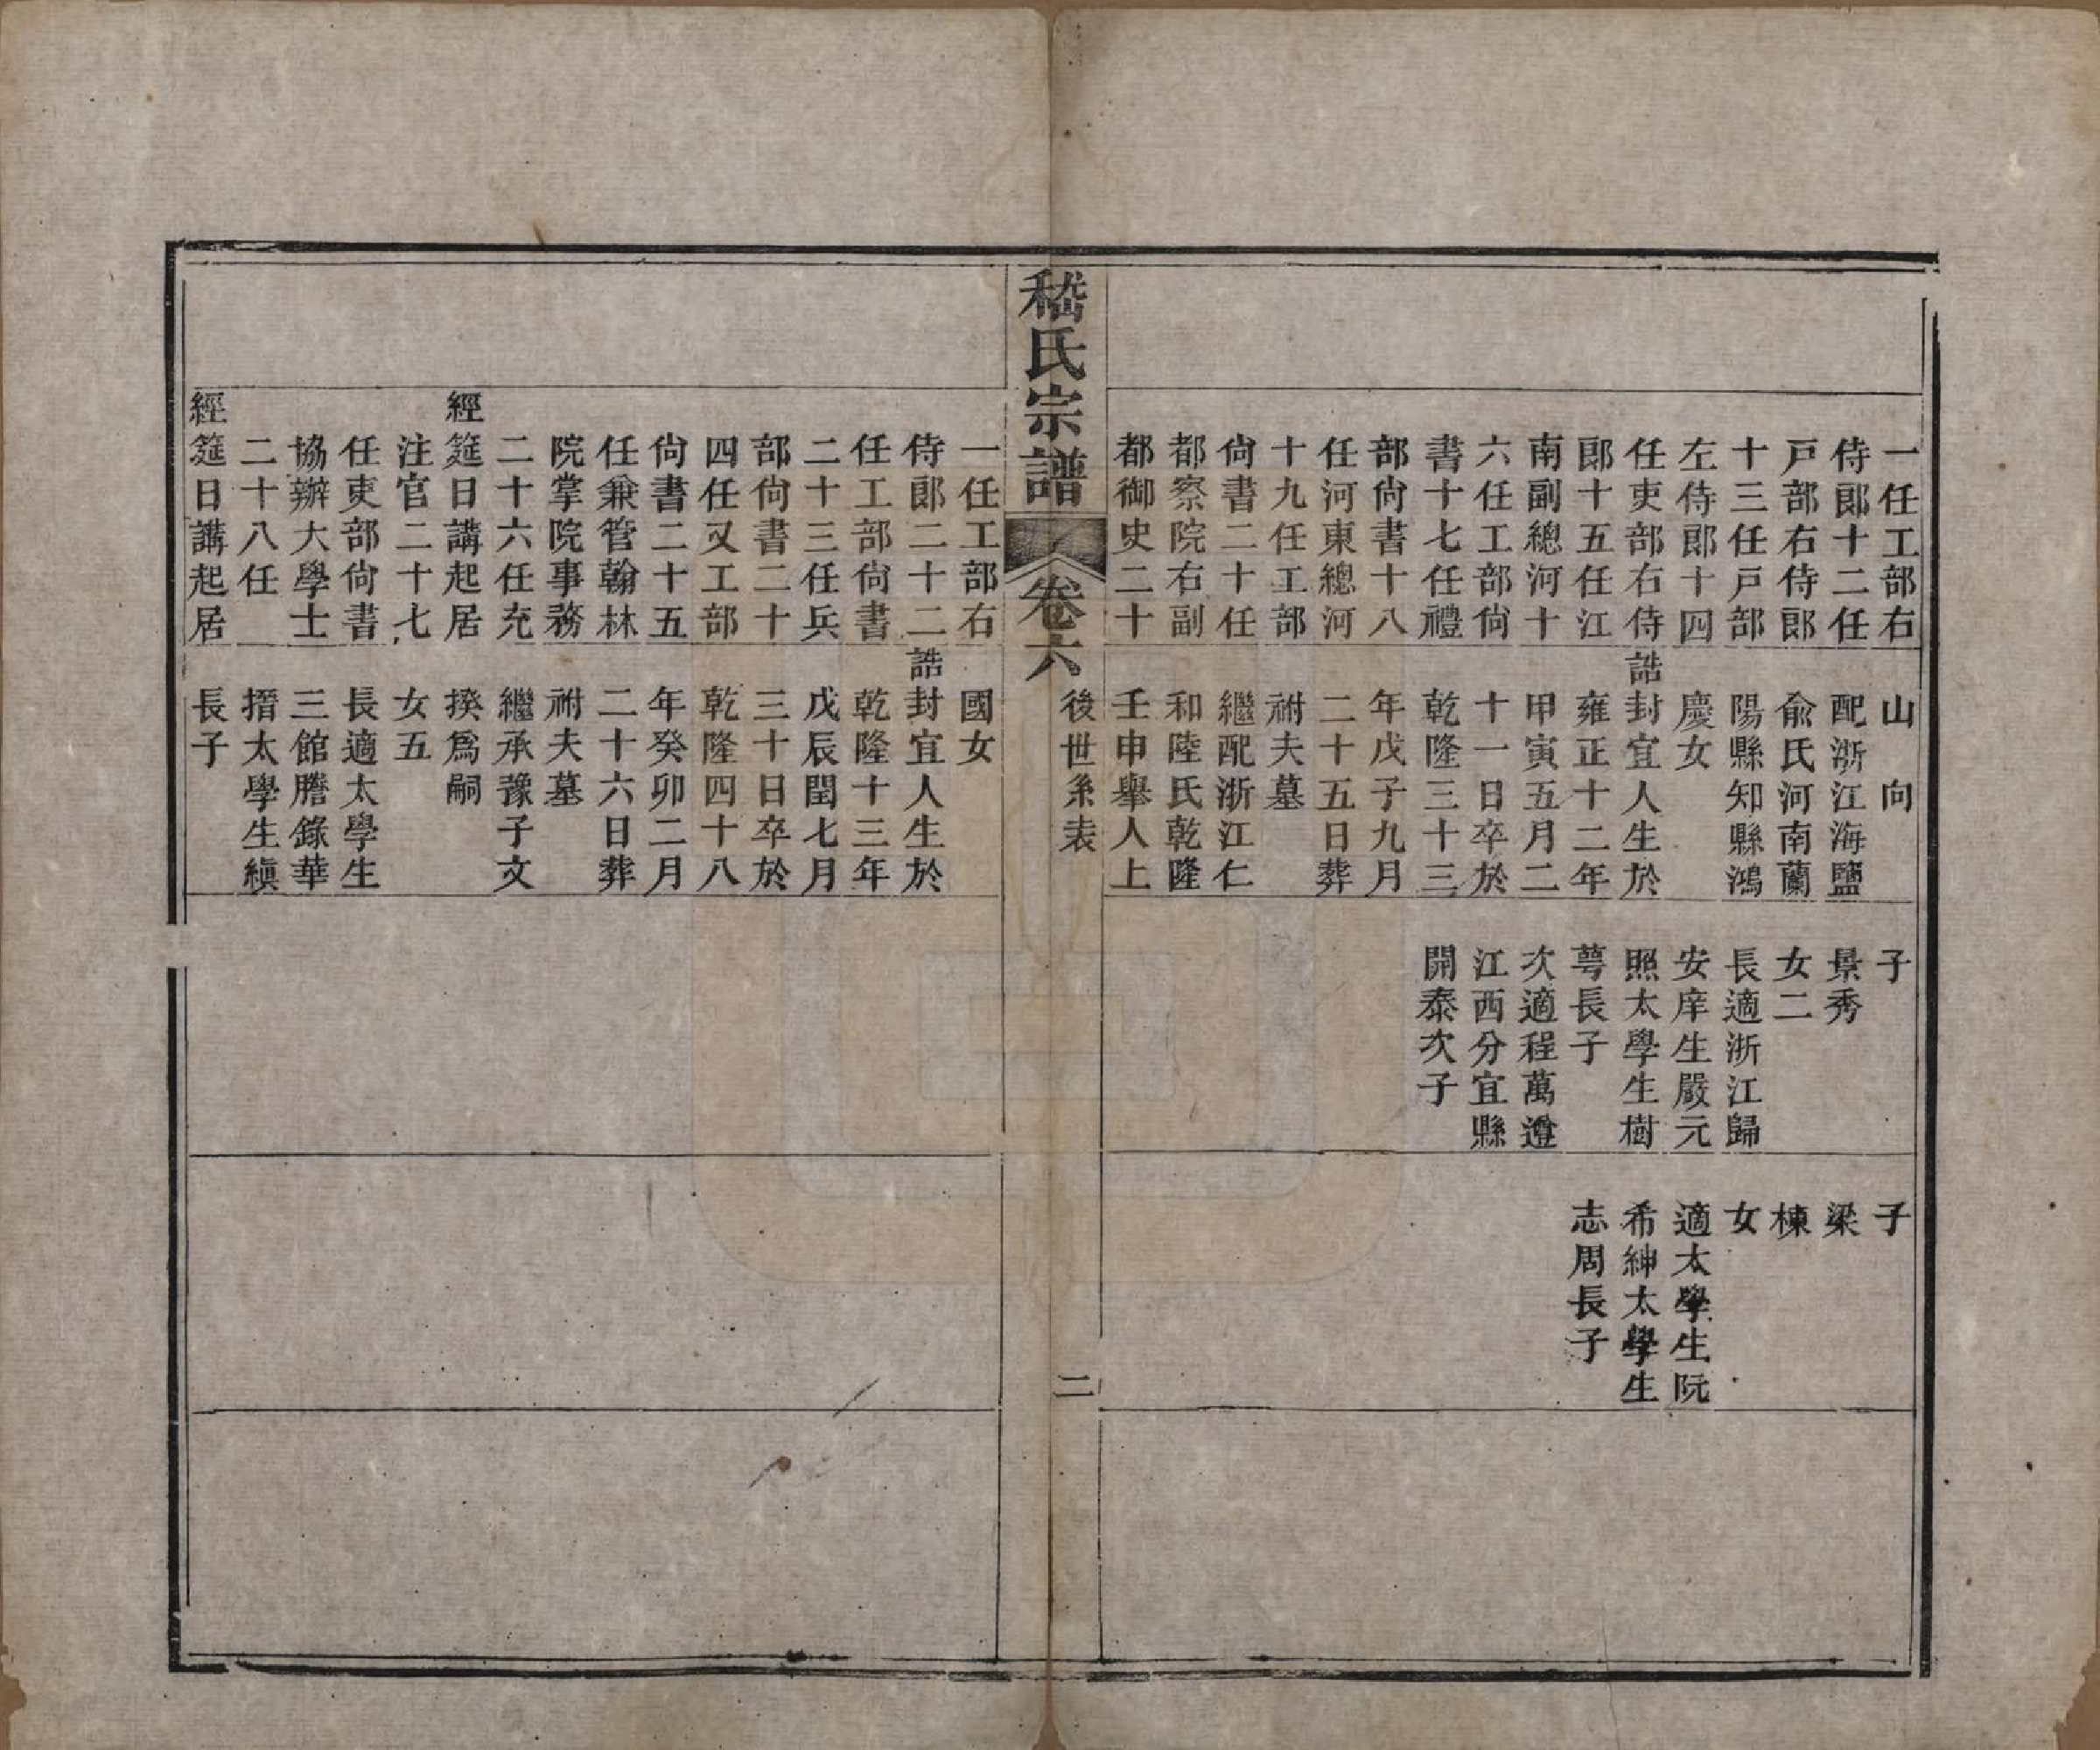 一任工部右
侍郎十二任
戸部右侍郎
十三任戸部
左侍郎十四
任吏部右侍
郎十五任江
南副總河十
六任工部尙
書十七任禮
部尙書十八
任河東總河
十九任工部
尙書二十任
都察院右副
都御史二十
山　向
配浙江海鹽
俞氏河南蘭
陽縣知縣鴻
慶女
誥封宜人生於
雍正十二年
甲寅五月二
十一日卒於
乾隆三十三
年戊子九月
二十五日葬
祔夫墓
繼配浙江仁
和陸氏乾隆
壬申舉人上
子
景秀
女二
長適浙江歸
安庠生嚴元
照太學生樹
萼長子
次適程萬遵
江西分宜縣
開泰次子
子
梁
棟
女
適太學生阮
希紳太學生
志周長子
嵇氏宗譜
卷六
後世系表
二
一任工部右
侍郎二十二
任工部尙書
二十三任兵
部尙書二十
四任又工部
尙書二十五
任兼管翰林
院掌院事務
二十六任充
經筵日講起居
注官二十七
任吏部尙書
協辦大學士
二十八任
經筵日講起居
國女
誥封宜人生於
乾隆十三年
戊辰閏七月
三十日卒於
乾隆四十八
年癸卯二月
二十六日葬
祔夫墓
繼承豫子文
揆爲嗣
女五
長適太學生
三館謄錄華
搢太學生縝
長子